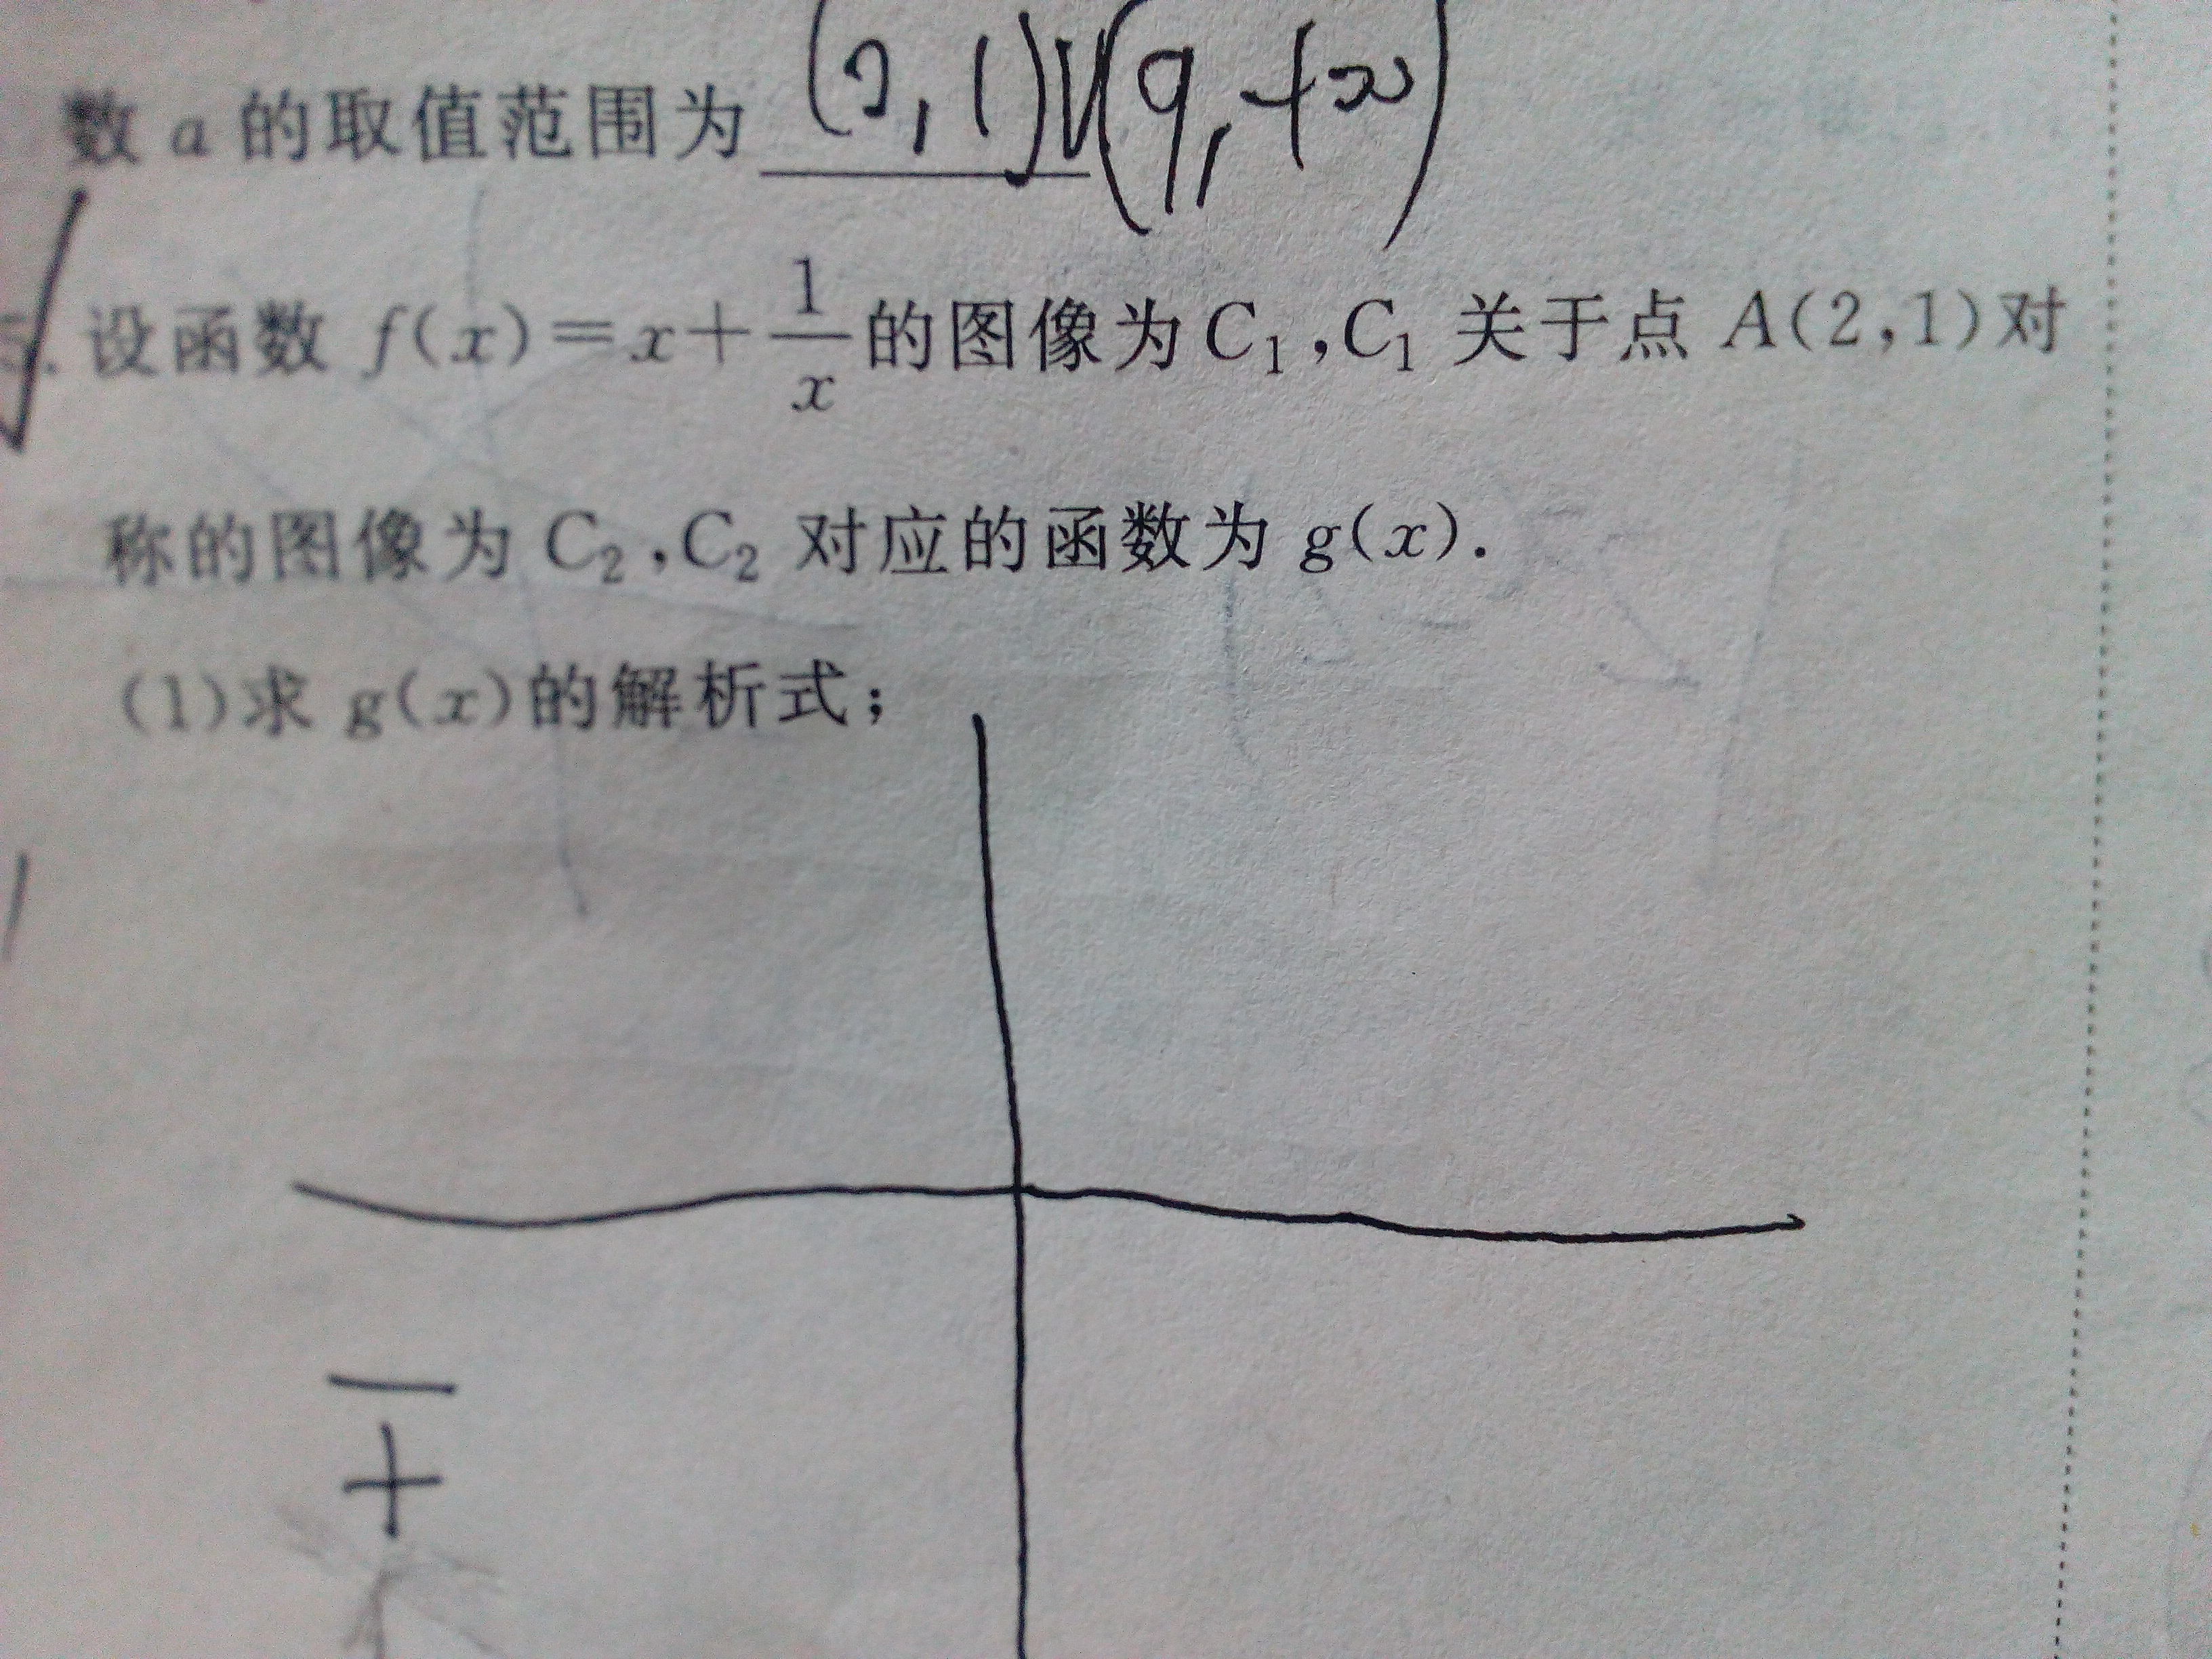 数 a 的取值范围为 (0,1)∪(9,+∞)
设函数 f(x)=x+\frac{1}{x}的图像为C₁,C₁ 关于点 A(2,1)对
称的图像为 C₂,C₂ 对应的函数为 g(x).
(1)求 g(x)的解析式;